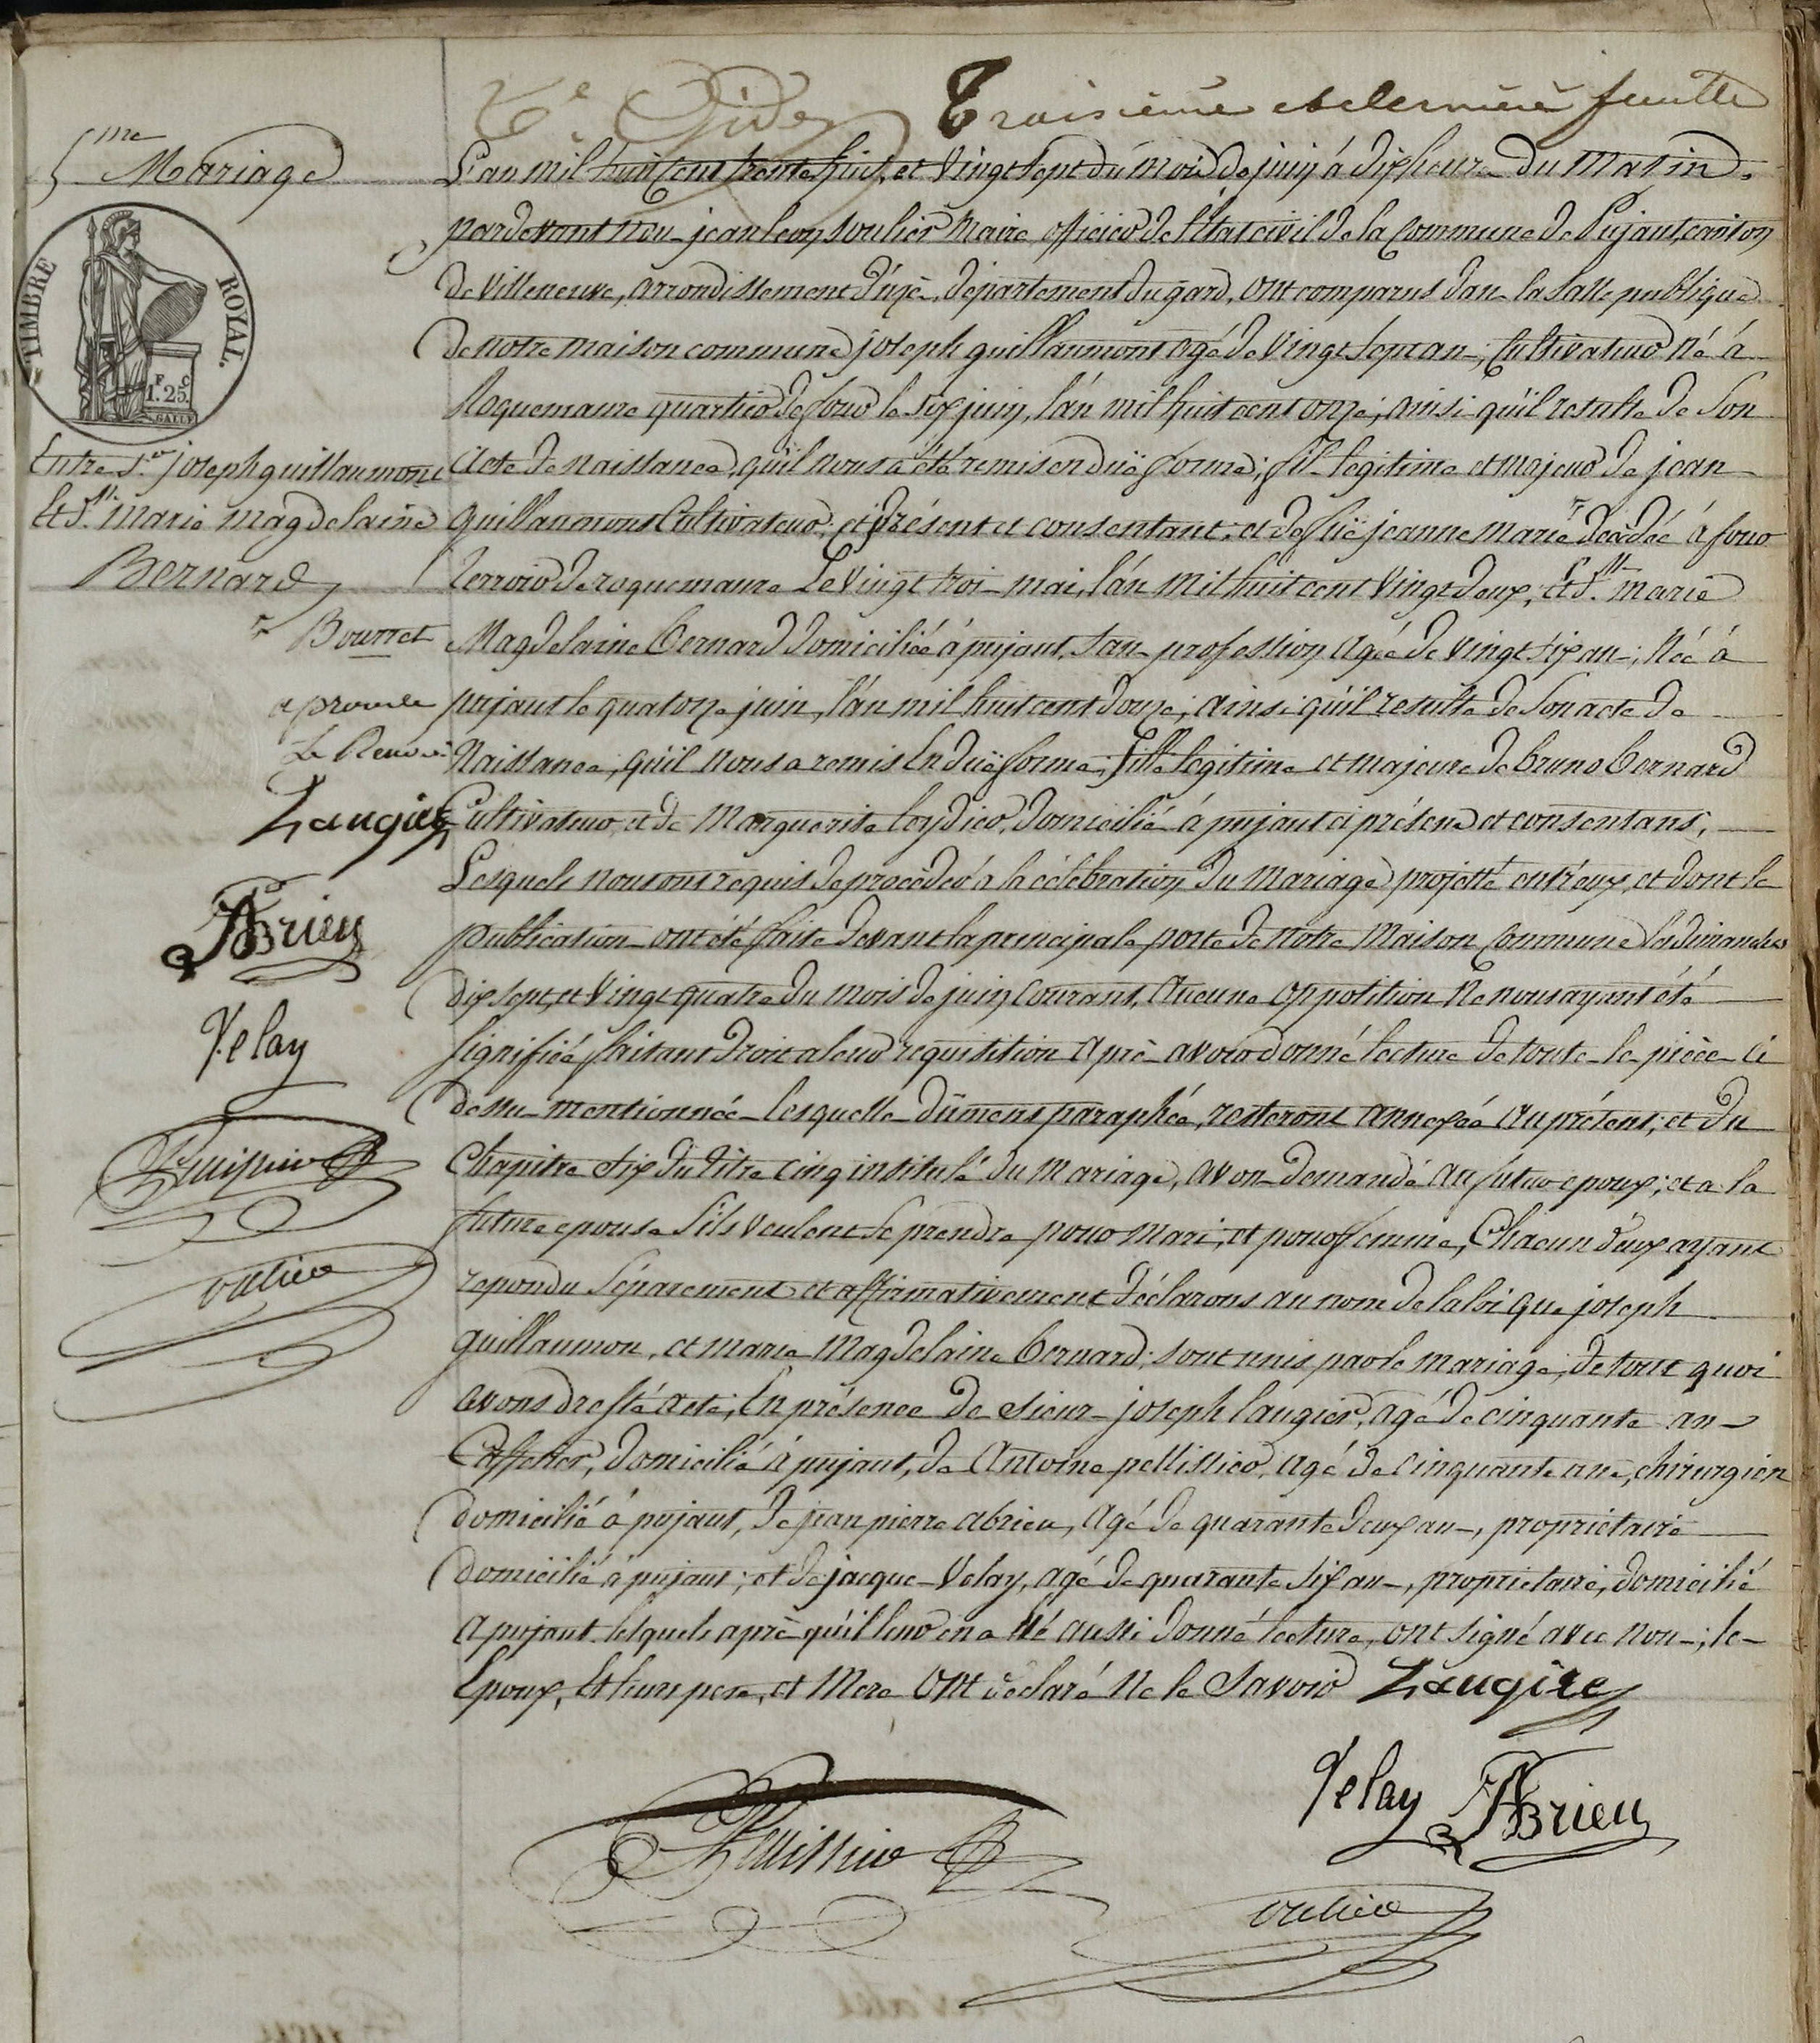 Troisième et dernière feuille
5me Mariage
TIMBRE ROYAL.
1.F 25.C
Entre Sr. joseph guillaumont
Et Dlle. Marie Magdelaine
Bernard
Bourret
aprouvé
Le Renvoi
Laugier
ABrieu
Velay
L'an mil huit cent trente huit, et vingt sept du mois de juin à dix heures du Matin,
pardevant nous jean leon soulier Maire officier de l'État civil de la Commune de Pujaut, canton
de Villeneuve, arrondissement d'uzès, département du gard, ont comparus dans la salle publique
de notre maison commune joseph guillaumont agé de vingt sept ans, Cultivateur né à
Roquemaure quartier de four le six juin, l'an mil huit cent onze, ainsi qu'il resulte de Son
acte de naissance, qu'il nous a été remis en duë forme; fils legitime et majeur de jean
guillaumont Cultivateur, ci présent et consentant, et de fuë jeanne marie décédée à four
Terroir de roquemaure Le vingt trois mai, l'an mil huit cent vingt deux; Et Dlle. marie
Magdelaine Bernard domiciliée à pujaut, sans profession agée de vingt six ans, Née à
pujaut le quatorze juin, l'an mil huit cent douze, ainsi qu'il resulte de Son acte de
Naissance, qu'il nous a remis En duë forme, fille legitime et majeure de bruno bernard
Cultivateur, et de Marguerite loydier, domiciliés à pujaut ci présens et consentans,
Lesquels nous ont requis de procéder à la célébration du mariage projetté entr'eux, et dont les
publications ont été faites devant la principale porte de notre Maison Commune les dimanches
dix sept, et vingt quatre du mois de juin Courant, Aucune opposition Ne nous ayant été
signifiée faisant droit a leur requisition après avoir donné lecture de toutes les pièces ci
dessus mentionnées lesquelles dûment paraphées, resteront annexées au présent, et du
Chapitre six du titre cinq intitulé du Mariage, avons demandé au futur epoux, et a la
future epouse s'ils veulent se prendre pour Mari, et pour femme, Chacun d'eux ayant
repondu Séparement et affirmativement déclarons au nom de la loi que joseph
guillaumon, et marie Magdelaine bernard, sont unis par le mariage, de tout quoi
avons dressé acte, En présence de sieurs joseph laugier, agé de cinquante ans
Caffetier, domicilié à pujaut, de Antoine pellissier, agé de cinquante ans, chirurgien
domicilié à pujaut, de jean pierre abrieu, agé de quarante deux ans, propriétaire
domicilié à pujaut, et de jacques Velay, agé de quarante six ans, propriétaire, domicilié
a pujaut lesquels après qu'il leur en a été aussi donné lecture, ont signé avec nous, les
Epoux, Et leurs pere, et Mere ont déclaré Ne le Savoir Laugier
Velay ABrieu
Pellissier